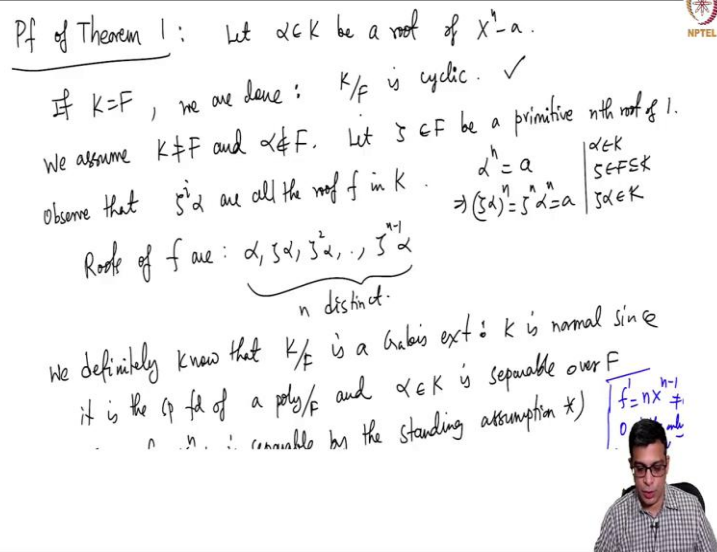 Pf of Theorem 1: Let α∈K be a root of X^n-a.
NPTEL
If K=F, we are done: K/F is cyclic. ✓
We assume K≠F and α∉F. Let ζ∈F be a primitive nth root of 1.
Observe that ζ^i α are all the roots f in K. α^n = a
⇒ (ζα)^n = ζ^n α^n = a
α∈K
ζ∈F⊆K
ζα∈K
Roots of f are: α, ζα, ζ^2 α, .., ζ^{n-1} α
n distinct.
We definitely know that K/F is a Galois ext: K is normal since
it is the sp fd of a poly/F and α∈K is separable over F
is separable by the standing assumption *)
f' = nX^{n-1} ≠
0 only